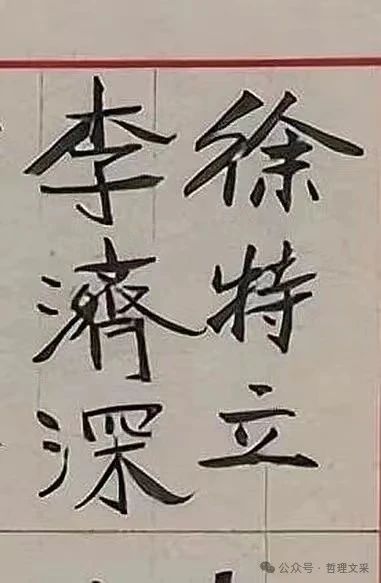 徐特立
李濟深
公众号·哲理文采